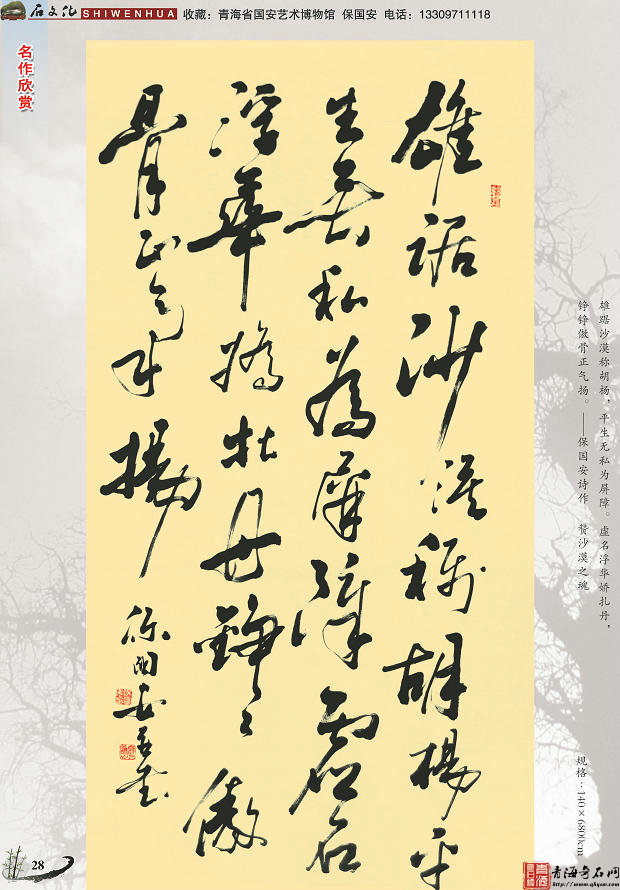 石文化 SHIWENHUA 收藏：青海省国安艺术博物馆 保国安 电话：13309711118
名作欣赏
雄踞沙漠稱胡楊平
生無私為屏障虛名
浮華嬌牡丹錚々傲
骨正气揚
保国安
雄踞沙漠称胡杨，平生无私为屏障。虚名浮华娇扎丹，
铮铮傲骨正气扬。——保国安诗作 赞沙漠之魂
规格：140×6800cm
28
青海奇石网
http://www.qhqsw.com